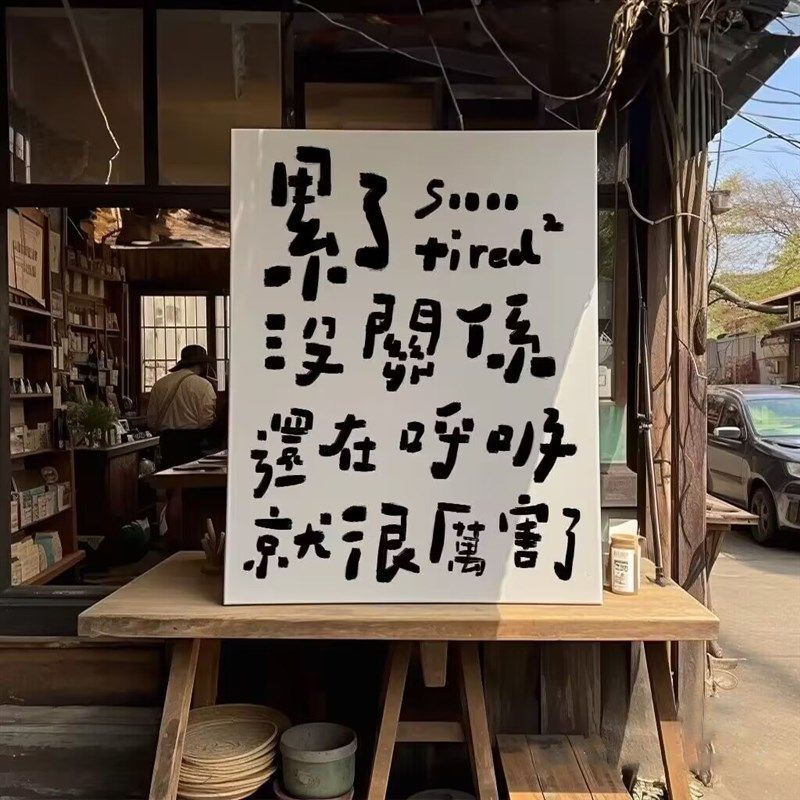 累了 soooo
tired²
沒關係
還在呼吸
就很厲害了